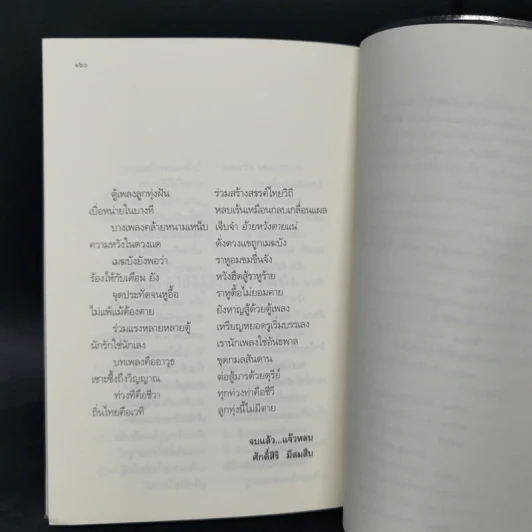 ๑๖๐
ตู้เพลงลูกทุ่งฝัน ร่วมสร้างสรรค์ไทยวิถี
เบื่อหน่ายในบางที หลบเร้นเหมือนกลบเกลื่อนแผล
บางเพลงคล้ายหนามเหน็บ เจ็บจำ อ้ายหวังตายแน่
ความหวังในดวงแด ดั่งดวงแขถูกเมฆบัง
เมฆบังยังพอว่า ราหูอมขมขื่นจัง
ร้องให้กับเดือน ยัง หวังฮึดสู้ราหูร้าย
จุดประทัดจนหูอื้อ ราหูดื้อไม่ยอมคาย
ไม่แพ้แม้ต้องตาย ยังหาญสู้ด้วยตู้เพลง
ร่วมแรงหลายหลายตู้ เหรียญหยอดรูเริ่มบรรเลง
นักรักใช่นักเลง เรานักเพลงใช่อันธพาล
บทเพลงคืออาวุธ ขุดกมลสันดาน
เซาะซึ้งถึงวิญญาณ ต่อสู้มารด้วยดุริย์
ท่วงทีคือชีวา ทุกท่วงท่าคือชีวี
ถิ่นไทยคือเวที ลูกทุ่งนี้ไม่มีตาย
จบแล้ว...แจ๊วหลบ
ศักดิ์สิริ มีสมสืบ